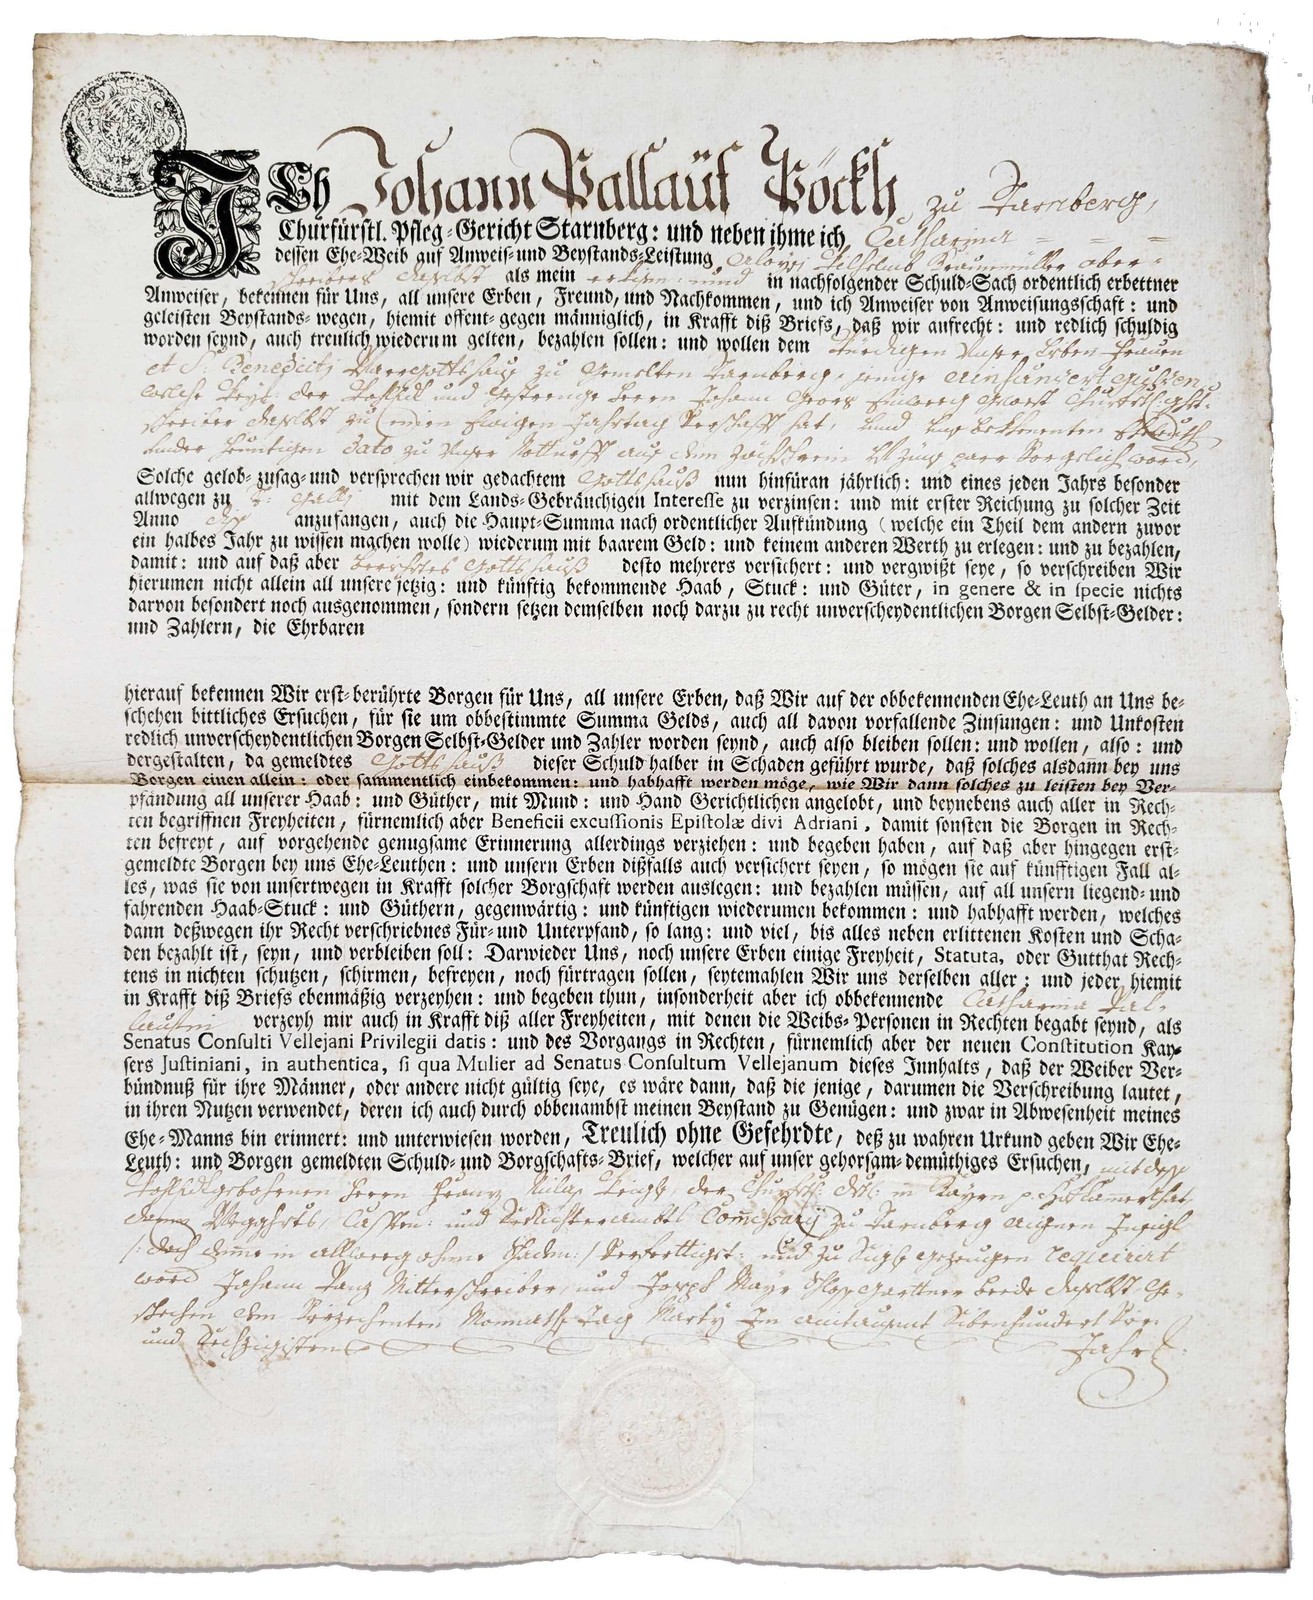 Ich Johann Pallauf Pöckh zu Starnberg,
Churfürstl. Pfleg-Gericht Starnberg: und neben ihme ich Catharina
dessen Ehe-Weib auf Anweis- und Beystands-Leistung Aloysi Braunmüller ober-
schreibers daselbst als mein in nachfolgender Schuld-Sach ordentlich erbettner
Anweiser, bekennen für Uns, all unsere Erben, Freund, und Nachkommen, und ich Anweiser von Anweisungsschaft: und
geleisten Beystands-wegen, hiemit offent-gegen männiglich, in Krafft diß Briefs, daß wir aufrecht: und redlich schuldig
worden seynd, auch treulich wiederum gelten, bezahlen sollen: und wollen dem würdigen Unser Lieben Frauen
et S: Benedicti Pfarrgottshaus zu gemelten Starnberg, jenige Ainhundert Gulden
welche der und Gestrenge Herr Johann Georg
schreiber daselbst zu einem Ewigen Jahrtag hat, und
under heuntigen Dato zu Unser Notturfft aus dem word,
Solche gelob-zusag- und versprechen wir gedachtem Gottshauß nun hinfüran jährlich: und eines jeden Jahrs besonder
allwegen zu S: Galli mit dem Lands-Gebräuchigen Interesse zu verzinsen: und mit erster Reichung zu solcher Zeit
Anno anzufangen, auch die Haupt-Summa nach ordentlicher Aufkündung (welche ein Theil dem andern zuvor
ein halbes Jahr zu wissen machen wolle) wiederum mit baarem Geld: und keinem anderen Werth zu erlegen: und zu bezahlen,
damit: und auf daß aber berührtes Gottshauß desto mehrers versichert: und vergwißt seye, so verschreiben Wir
hierumen nicht allein all unsere jetzig: und künftig bekommende Haab, Stuck: und Güter, in genere & in specie nichts
darvon besondert noch ausgenommen, sondern setzen demselben noch darzu zu recht unverscheydentlichen Borgen Selbst-Gelder:
und Zahlern, die Ehrbaren
hierauf bekennen Wir erst-berührte Borgen für Uns, all unsere Erben, daß Wir auf der obbekennenden Ehe-Leuth an Uns be-
schehen bittliches Ersuchen, für sie um obbestimmte Summa Gelds, auch all davon vorfallende Zinsungen: und Unkosten
redlich unverscheydentlichen Borgen Selbst-Gelder und Zahler worden seynd, auch also bleiben sollen: und wollen, also: und
dergestalten, da gemeldtes Gottshauß dieser Schuld halber in Schaden geführt wurde, daß solches alsdann bey uns
Borgen einen allein: oder sammentlich einbekommen: und habhafft werden möge, wie Wir dann solches zu leisten bey Ver-
pfändung all unserer Haab: und Güther, mit Mund: und Hand Gerichtlichen angelobt, und beynebens auch aller in Rech-
ten begriffnen Freyheiten, fürnemlich aber Beneficii excussionis Epistolæ divi Adriani, damit sonsten die Borgen in Rech-
ten befreyt, auf vorgehende genugsame Erinnerung allerdings verziehen: und begeben haben, auf daß aber hingegen erst-
gemeldte Borgen bey uns Ehe-Leuthen: und unsern Erben dißfalls auch versichert seyen, so mögen sie auf künfftigen Fall al-
les, was sie von unsertwegen in Krafft solcher Borgschaft werden auslegen: und bezahlen müssen, auf all unsern liegend- und
fahrenden Haab-Stuck: und Güthern, gegenwärtig: und künftigen wiederumen bekommen: und habhafft werden, welches
dann deßwegen ihr Recht verschriebnes Für- und Unterpfand, so lang: und viel, bis alles neben erlittenen Kosten und Scha-
den bezahlt ist, seyn, und verbleiben soll: Darwieder Uns, noch unsere Erben einige Freyheit, Statuta, oder Gutthat Rech-
tens in nichten schutzen, schirmen, befreyen, noch fürtragen sollen, seytemahlen Wir uns derselben aller: und jeder hiemit
in Krafft diß Briefs ebenmäßig verzeyhen: und begeben thun, insonderheit aber ich obbekennende Catharina Pal-
laufin verzeyh mir auch in Krafft diß aller Freyheiten, mit denen die Weibs-Personen in Rechten begabt seynd, als
Senatus Consulti Vellejani Privilegii datis: und des Vorgangs in Rechten, fürnemlich aber der neuen Constitution Kay-
sers Justiniani, in authentica, si qua Mulier ad Senatus Consultum Vellejanum dieses Innhalts, daß der Weiber Ver-
bündnuß für ihre Männer, oder andere nicht gültig seye, es wäre dann, daß die jenige, darumen die Verschreibung lautet,
in ihren Nutzen verwendet, deren ich auch durch obbenambst meinen Beystand zu Genügen: und zwar in Abwesenheit meines
Ehe-Manns bin erinnert: und unterwiesen worden, Treulich ohne Gefehrdte, deß zu wahren Urkund geben Wir Ehe-
Leuth: und Borgen gemeldten Schuld- und Borgschafts-Brief, welcher auf unser gehorsam-demüthiges Ersuchen, mit deß
Wohledlgebohrnen Herrn Franz der Churfrtl: in Bayrn
Casten: und Commissary zu Starnberg aignen Insigl
/: doch deme in allweeg ohne Schaden :/ verferttigt: und zu Sigls gezeugen requirirt
word Johann Mitterschreiber, und Joseph Mayr beede daselbst Ge-
schehen den Vierzechenten Monnaths Tag Marty Im aintausent Sibenhundert Vier
und Sechzigisten Jahr